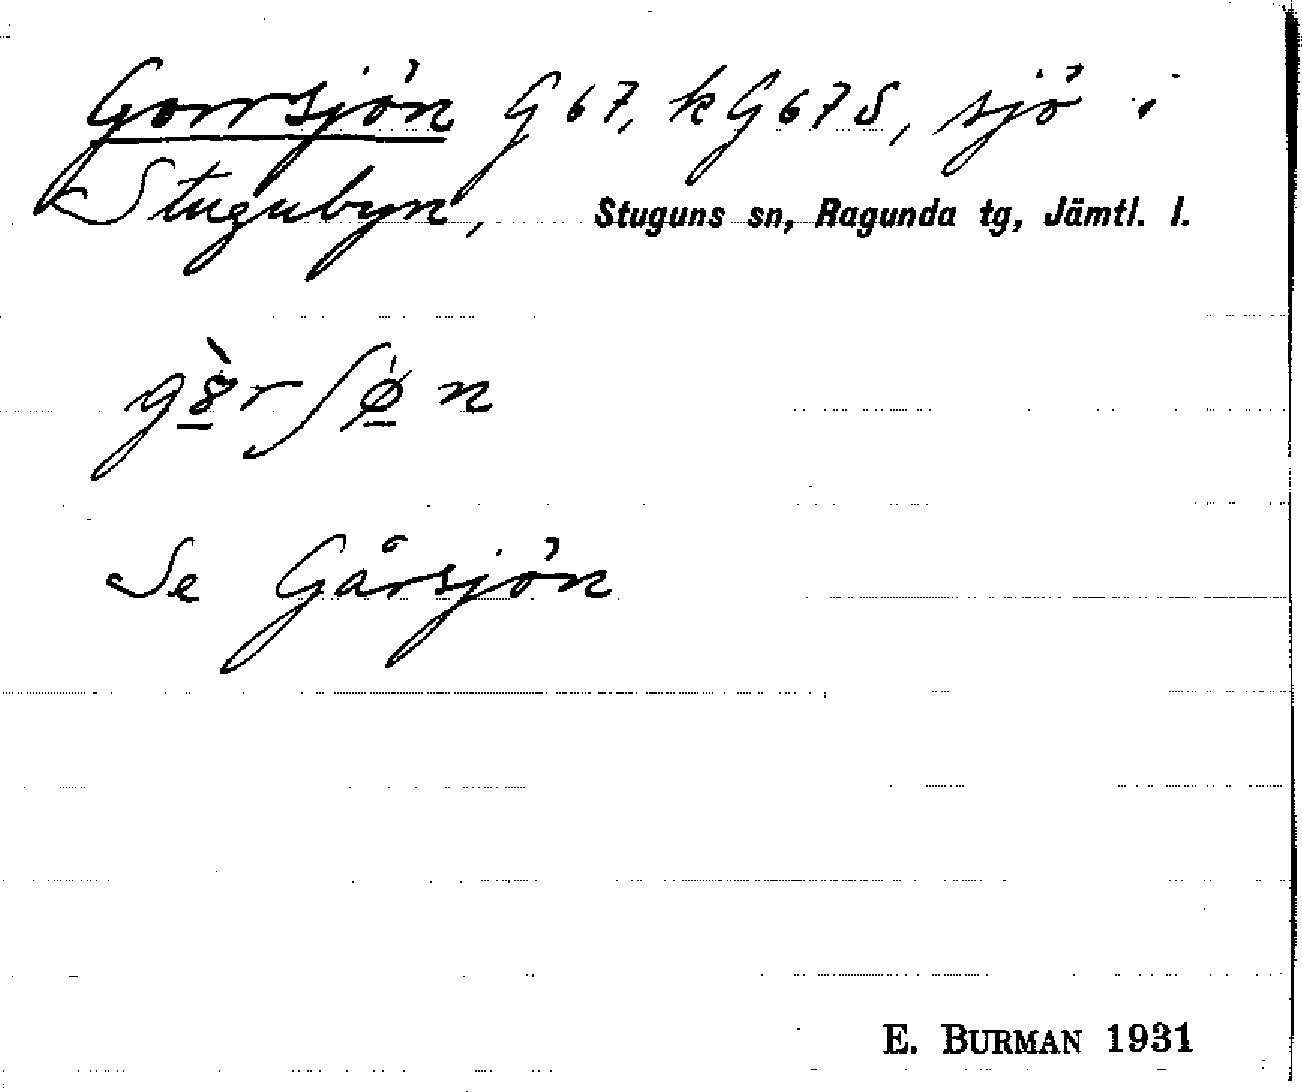 Gorrsjön G 67, k G 67 S, sjö i
Stugubyn, Stuguns sn, Ragunda tg, Jämtl. l.
Se Gårsjön
E. BURMAN 1931